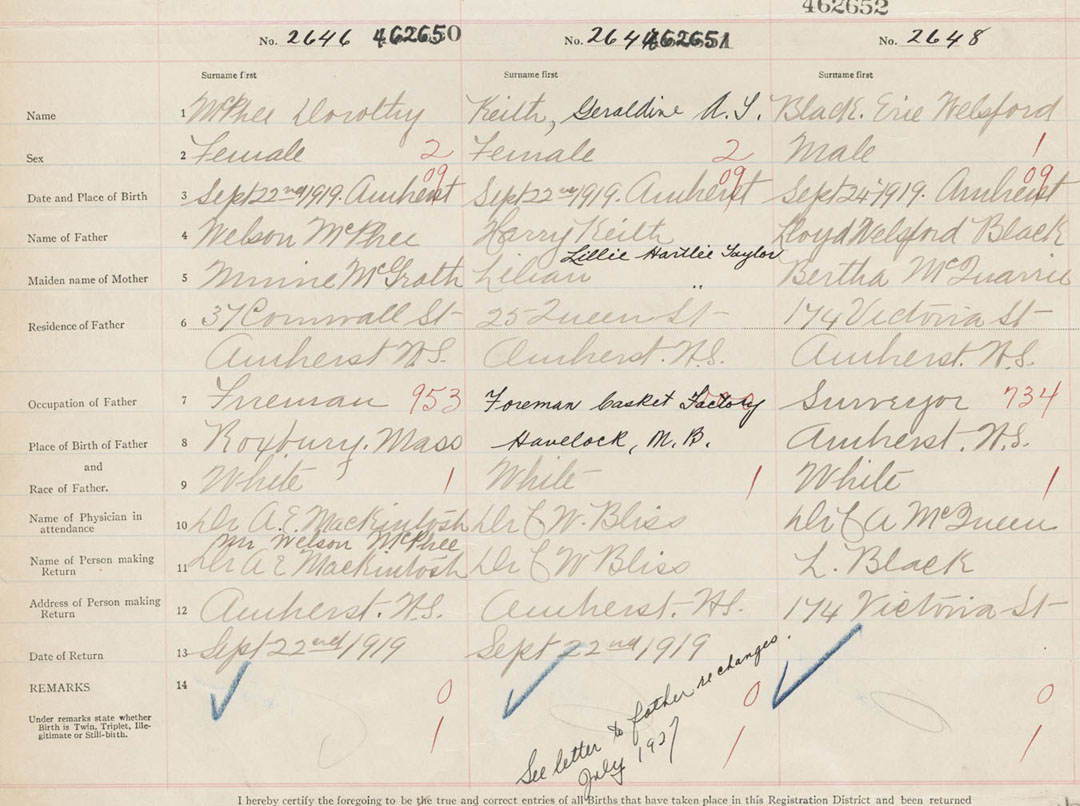 462652
No. 2646 462650 No. 264 462651 No. 2648
Surname first Surname first Surname first
Name 1 McPhee Dorothy Keith, Geraldine A. Black. Eric Welsford
Sex 2 Female 2 Female 2 Male 1
09 09 09
Date and Place of Birth 3 Sept 22nd 1919. Amherst Sept 22nd 1919. Amherst Sept 24 1919. Amherst
Name of Father 4 Welson McPhee Harry Keith Lloyd Welsford Black
Lillie Hartlie Taylor
Maiden name of Mother 5 Minnie McGrath Lilian " Bertha McQuarrie
Residence of Father 6 37 Cornwall St 25 Queen St 174 Victoria St
Amherst N.S. Amherst. N.S. Amherst. N.S.
Occupation of Father 7 953 Foreman Casket Factory Surveyor 734
Place of Birth of Father 8 Roxbury. Mass Havelock, N.B. Amherst. N.S.
and
Race of Father. 9 White 1 White 1 White 1
Name of Physician in attendance 10 Dr A. E. Mackintosh Dr C W. Bliss Dr C A McQueen
Mr Welson McPhee
Name of Person making Return 11 Dr A E Mackintosh Dr C W Bliss L. Black
Address of Person making Return 12 Amherst. N.S. Amherst- N.S. 174 Victoria St
Date of Return 13 Sept 22nd 1919 Sept 22nd 1919
REMARKS 14 0 0 0
Under remarks state whether Birth is Twin, Triplet, Ille-
gitimate or Still-birth. 1 1 1
See letter to father re changes.
July 1927
I hereby certify the foregoing to be the true and correct entries of all Births that have taken place in this Registration District and been returned